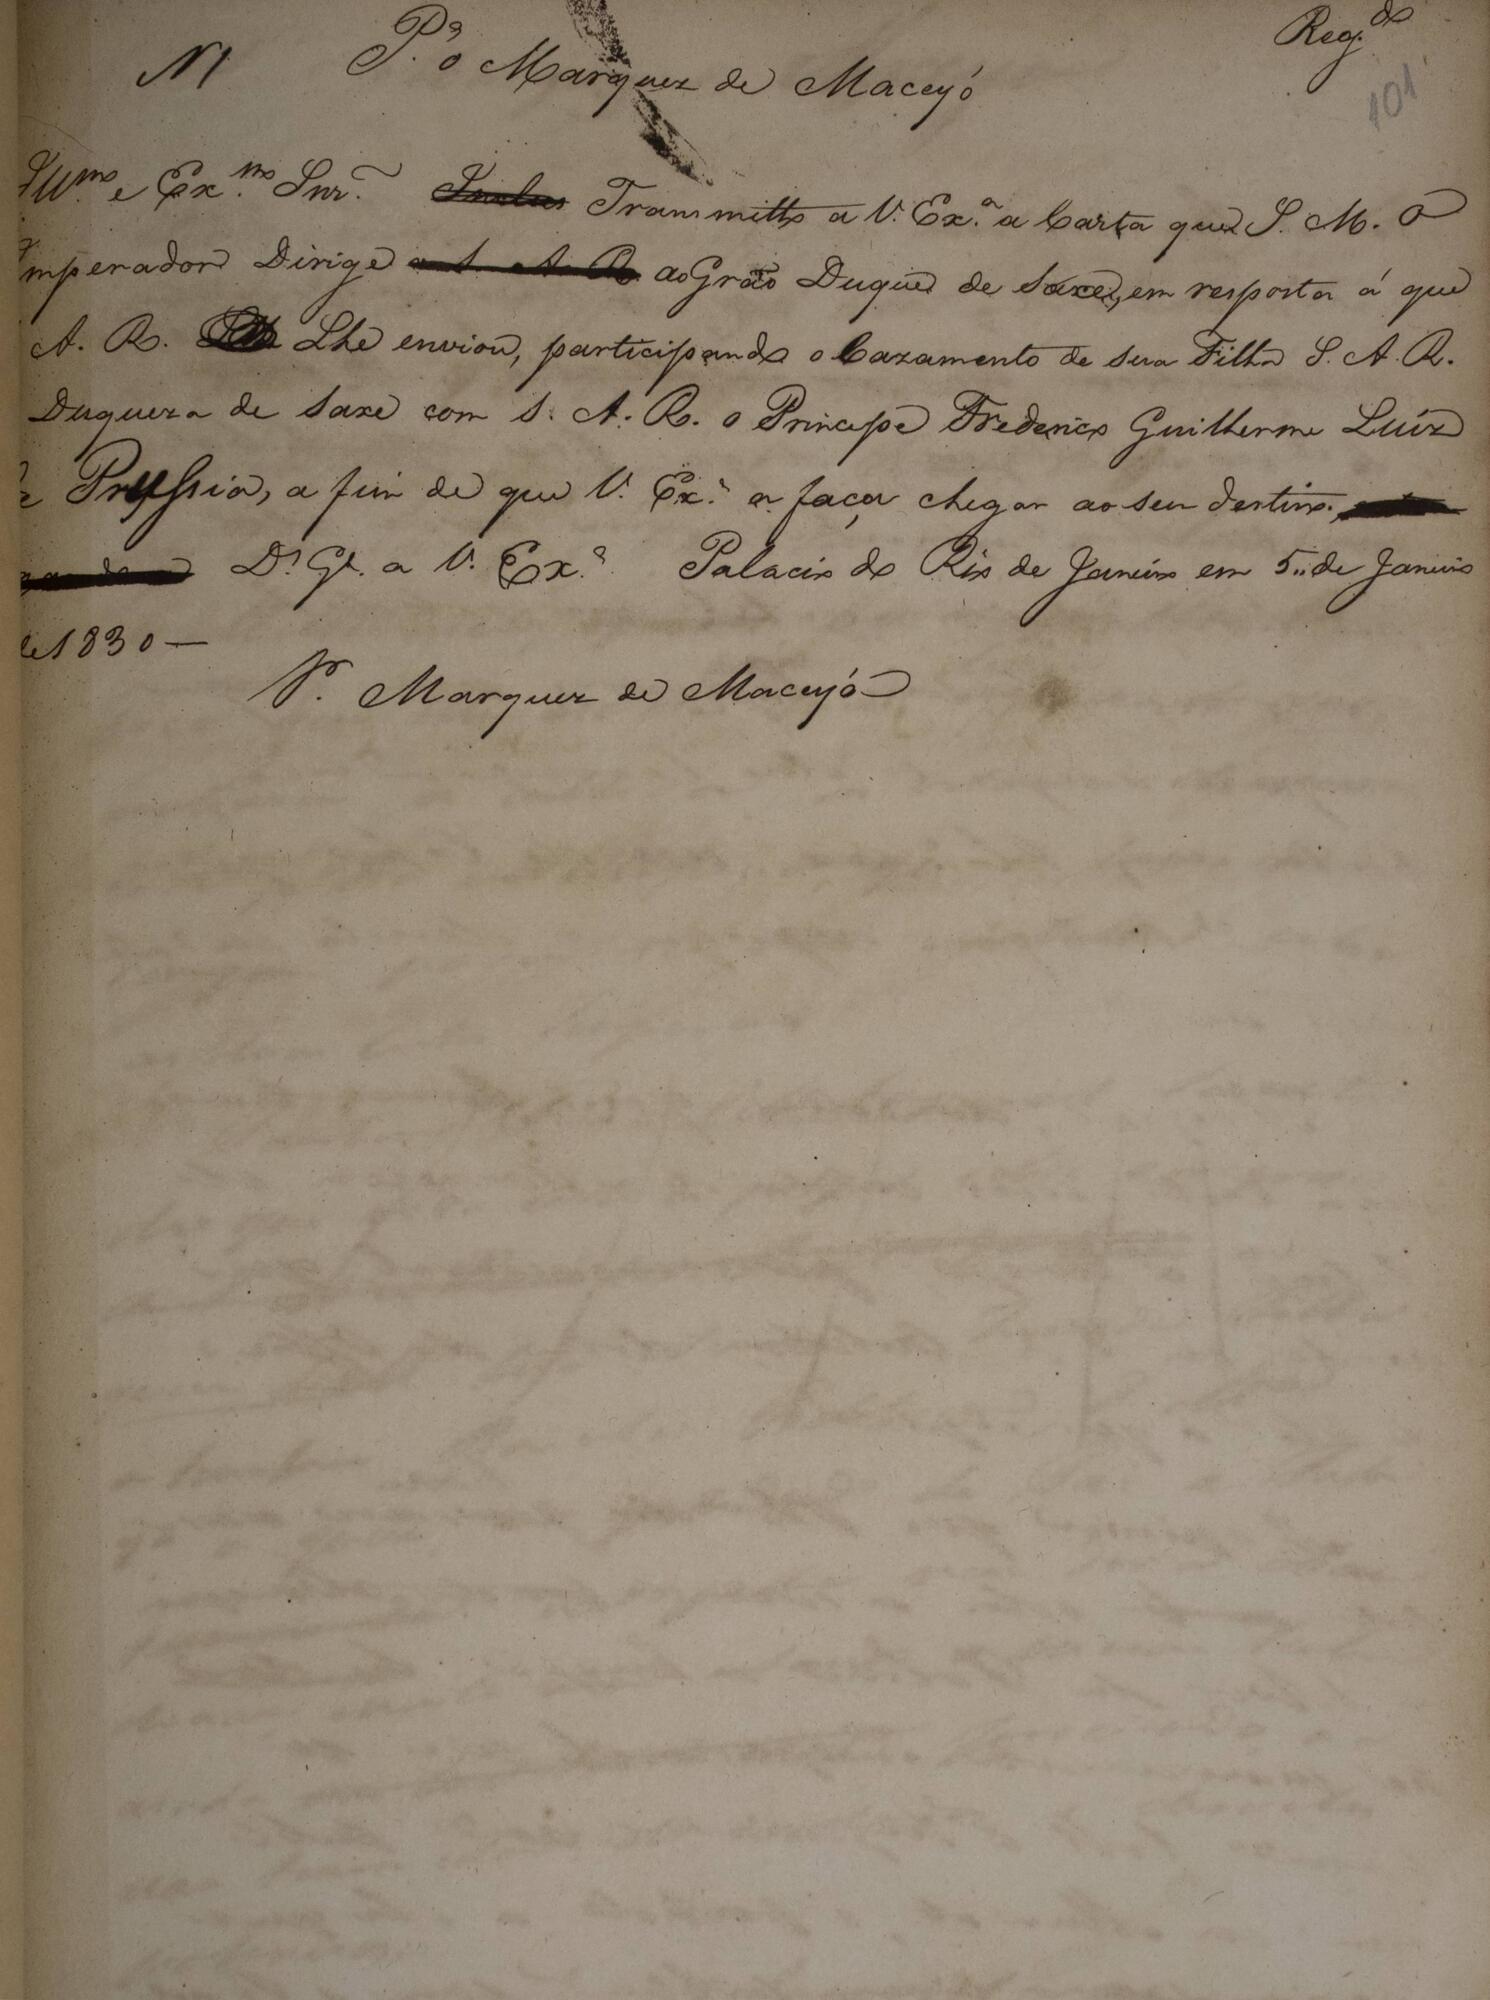 N1 P.ª o Marquez de Maceyó Reg.do
101
Ill.mo e Ex.mo Snr. Transmitto a V. Ex.ª a Carta que S. M. O
Imperador Dirige a S. A. R. ao Grão Duque de Saxe, em resposta á que
A. R. Lhe enviou, participando o Cazamento de sua Filha S. A. R.
Duqueza de Saxe com S. A. R. o Principe Frederico Guilherme Luiz
de Prussia, a fim de que V. Ex.ª a faça chegar ao seu destino.
D.s G.e a V. Ex.ª Palacio do Rio de Janeiro em 5 de Janeiro
de 1830 —
Sr. Marquez de Maceyó